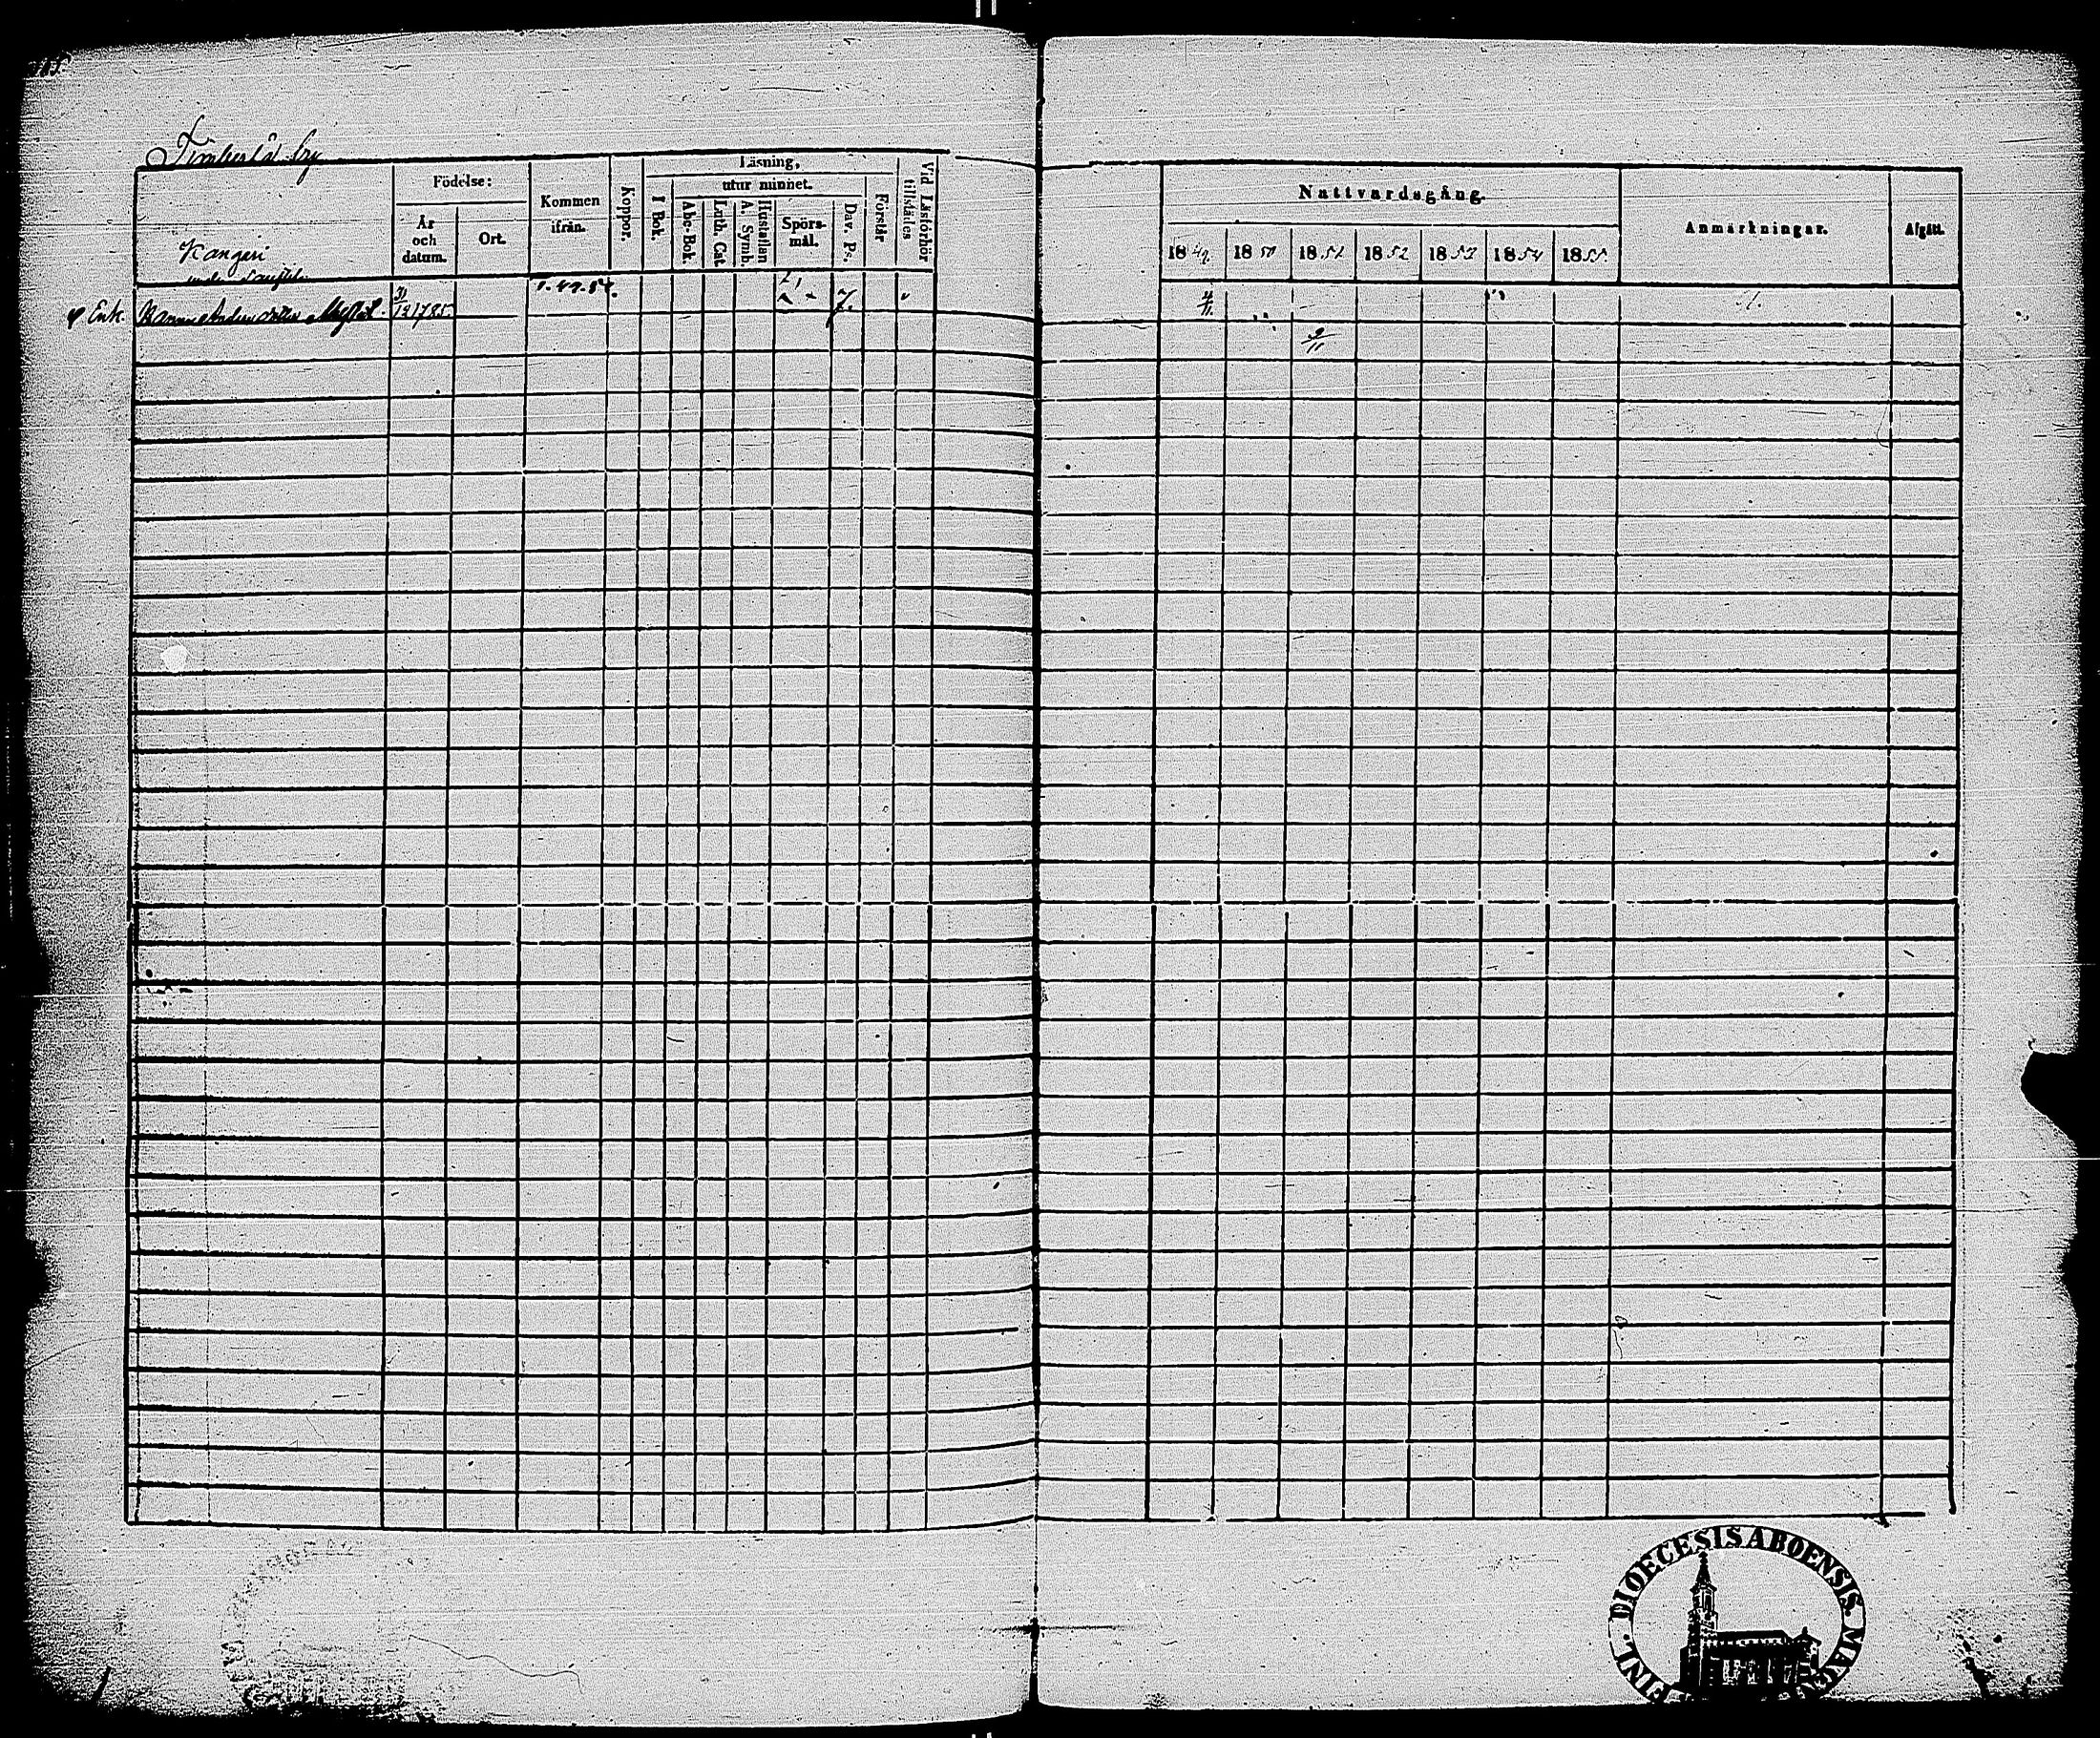 by
Kangeri
under
Födelse:
År och datum.
Ort.
Kommen ifrån.
Koppor.
Läsning,
utur minnet.
I Bok.
Abc-Bok
Luth. Cat.
A. Symb.
Hustaflan
Spörsmål.
Dav. Ps.
Förstår
Vid Läsförhör tillstädes
Enk. 31/12 1785. 7.
Nattvardsgång.
1849 1850 1851 1852 1853 1854 1855
Anmärkningar.
Afgått.
4/11
9/11
FINL. DIOECESIS ABOENSIS. MAGN